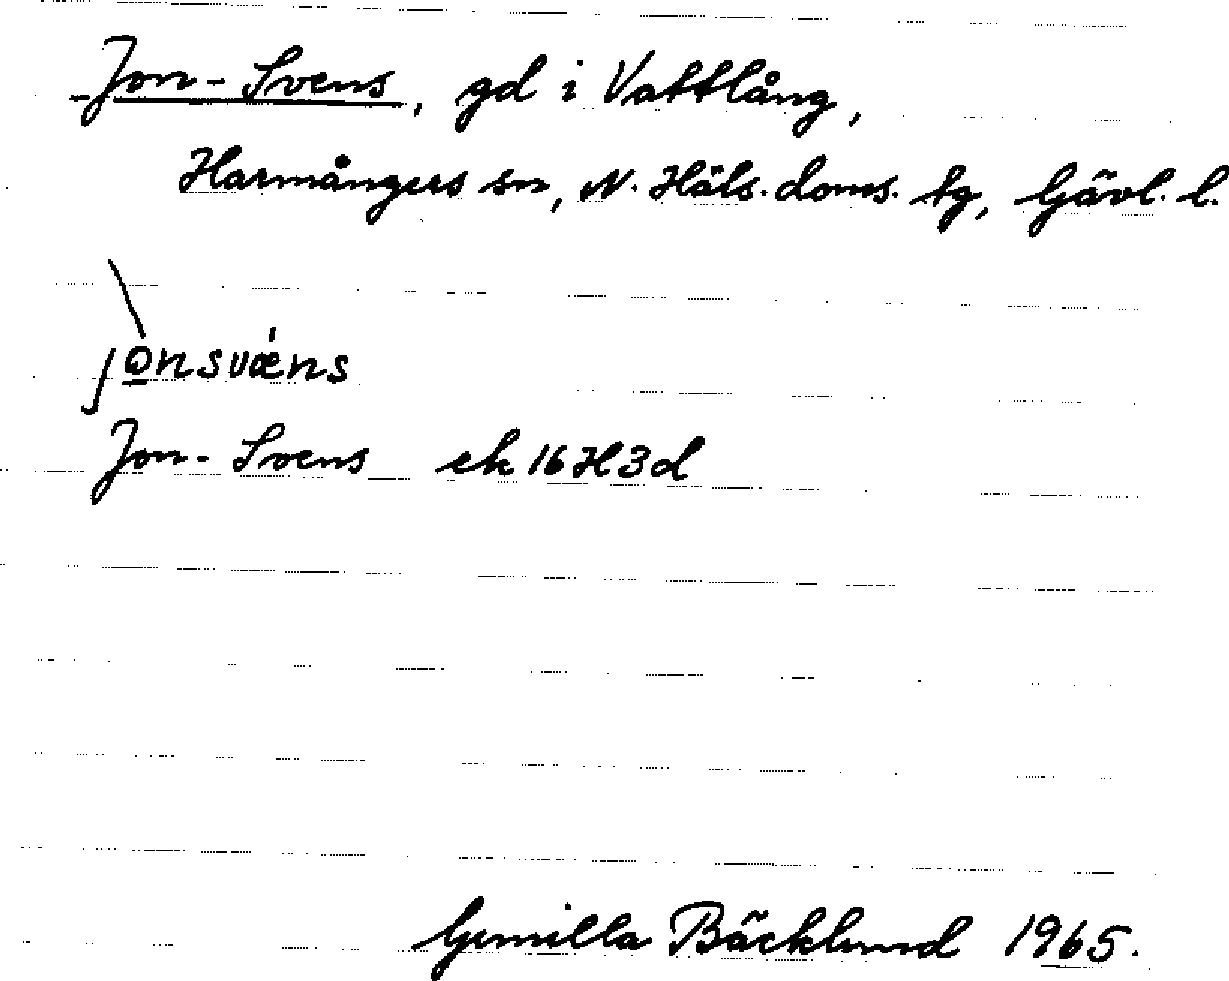 Jon-Svens, gd i Vattlång,
Harmångers sn, N. Häls. doms. tg, Gävl. l.
jò̱nsvǽns
Jon-Svens ek 16H3d
Gunilla Bäcklund 1965.